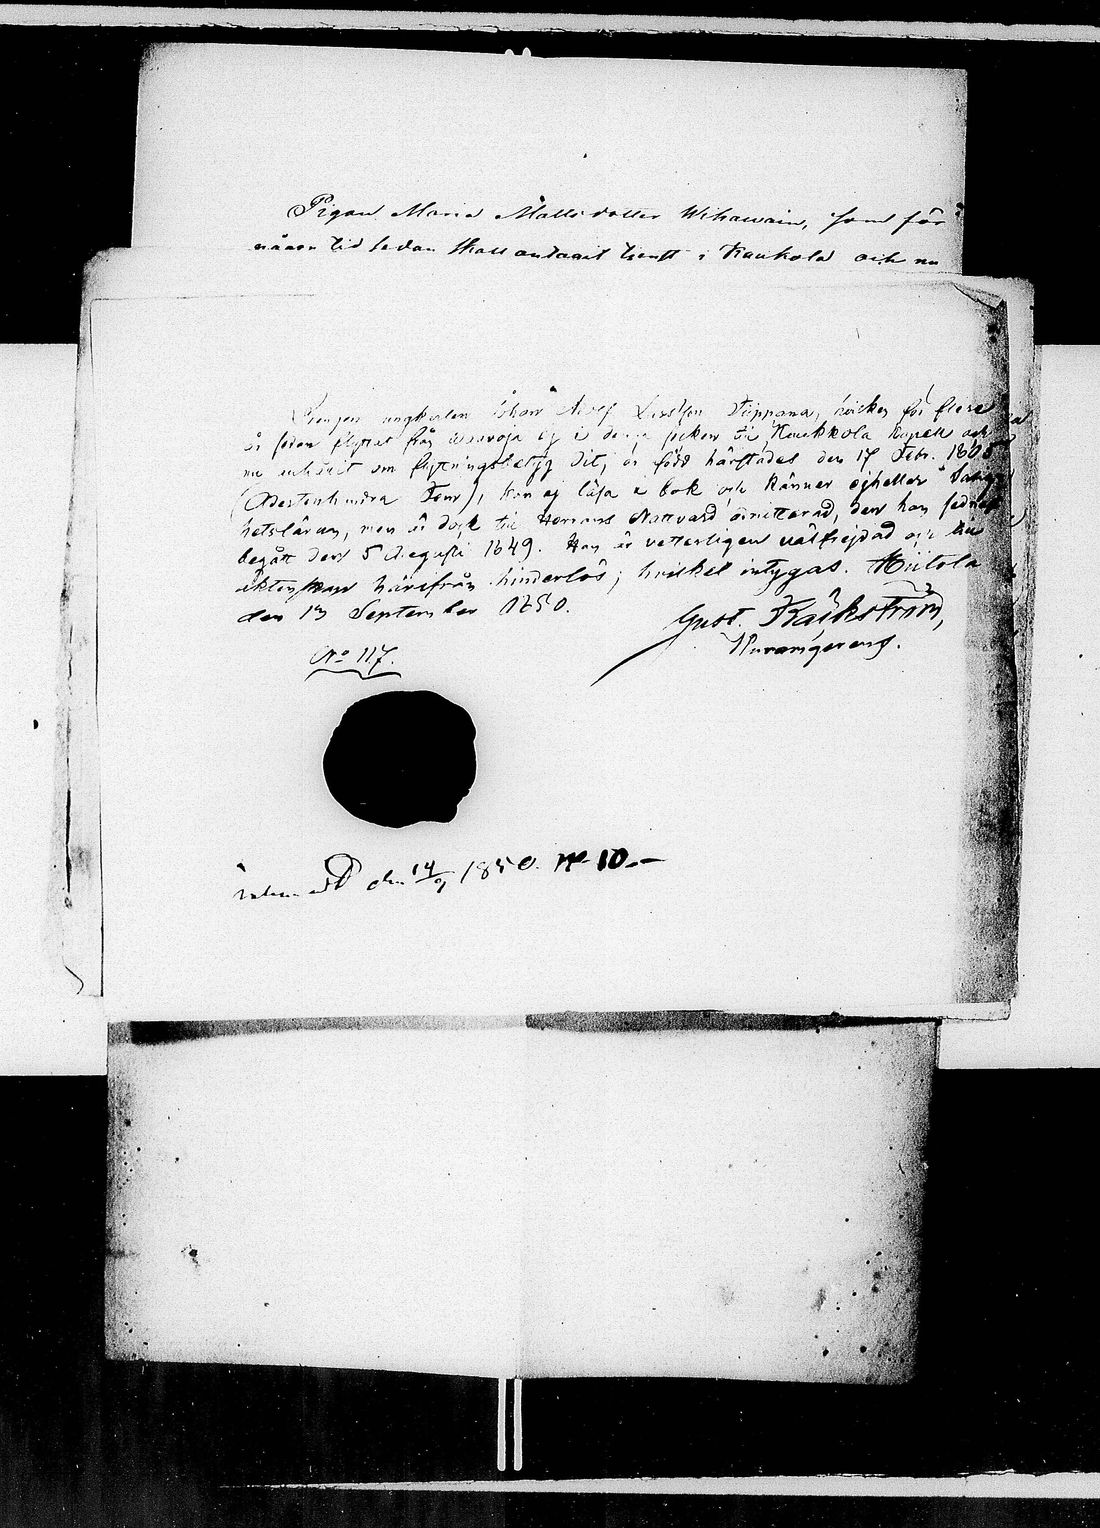 Pigan Maria Matts dotter Wihawain, som för
någon tid sedan skall antagit tienst i Kaukola och nu
ungkarlen Johan Larsson Tiippana, hvilken för flere
år sedan flyttat från i denna socken till Kaukkola Kapell och
nu anhållit om flyttningsbetyg dit, är född härstädes den 17 Febr. 1805
(Adertonhundra Fem), kan ej läsa i bok och känner ejheller Salig-
hetsläran, men är dock till Herrans Nattvard admitterad, den han sednast
begått den 5 Augusti 1849. Han är vetterligen välfrejdad och till
äktenskap härifrån hinderlös; hvilket intygas. Hiitola
den 13 September 1850.
Gust.
N:o 117.
den 14/9 1850. N:o 10.